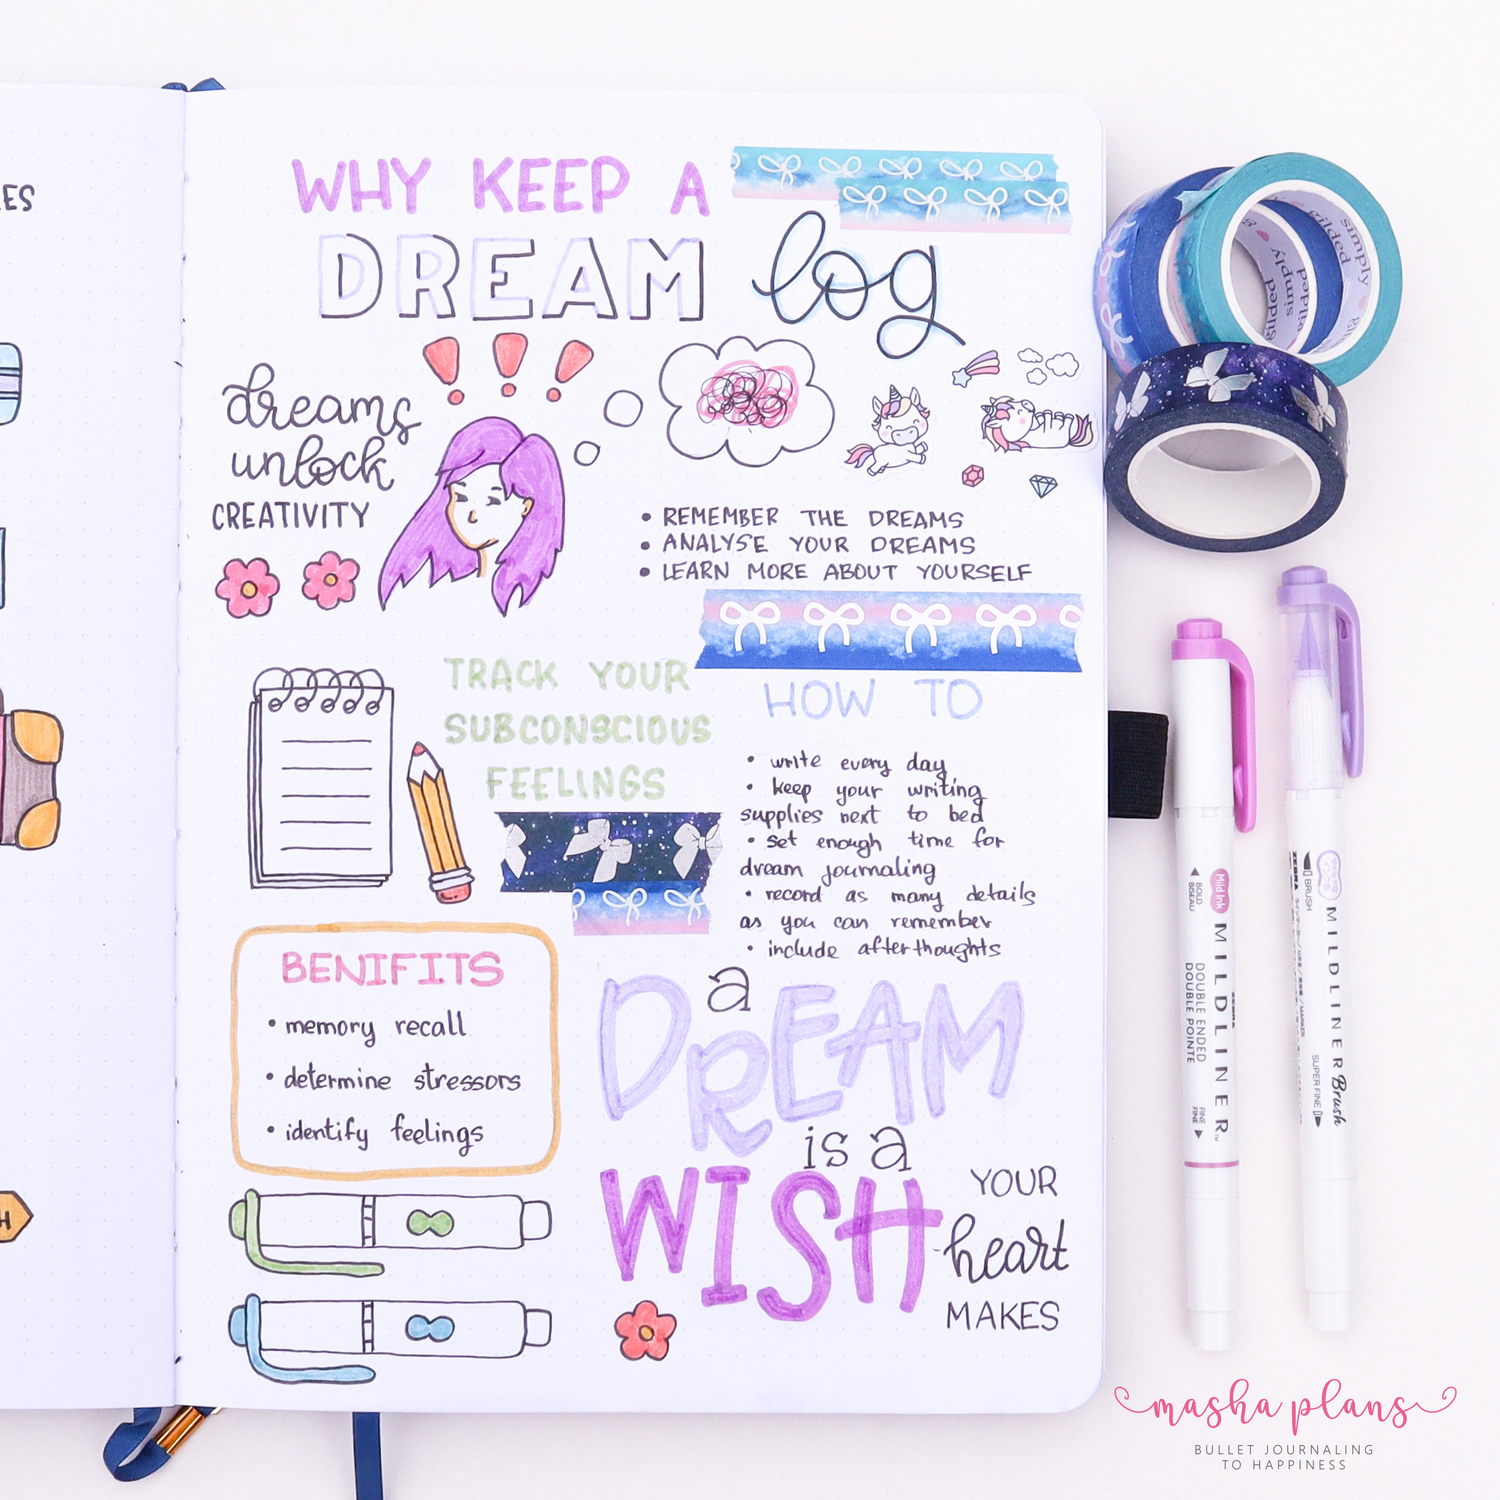 ES
H
WHY KEEP A
DREAM log
dreams
unlock
CREATIVITY
• REMEMBER THE DREAMS
• ANALYSE YOUR DREAMS
• LEARN MORE ABOUT YOURSELF
TRACK YOUR
SUBCONSCIOUS
FEELINGS
HOW TO
• write every day
• keep your writing
supplies next to bed
• set enough time for
dream journaling
• record as many details
as you can remember
• include afterthoughts
BENIFITS
• memory recall
• determine stressors
• identify feelings
a
DREAM
is a
WISH
YOUR
heart
MAKES
simply
gilded
simply
gilded
Mild Ink
MILDLINER™
DOUBLE ENDED
DOUBLE POINTE
BOLD
BISEAU
FINE
FINE
ZEBRA
BRUSH
MILDLINER Brush
SUPER FINE
masha plans
BULLET JOURNALING
TO HAPPINESS